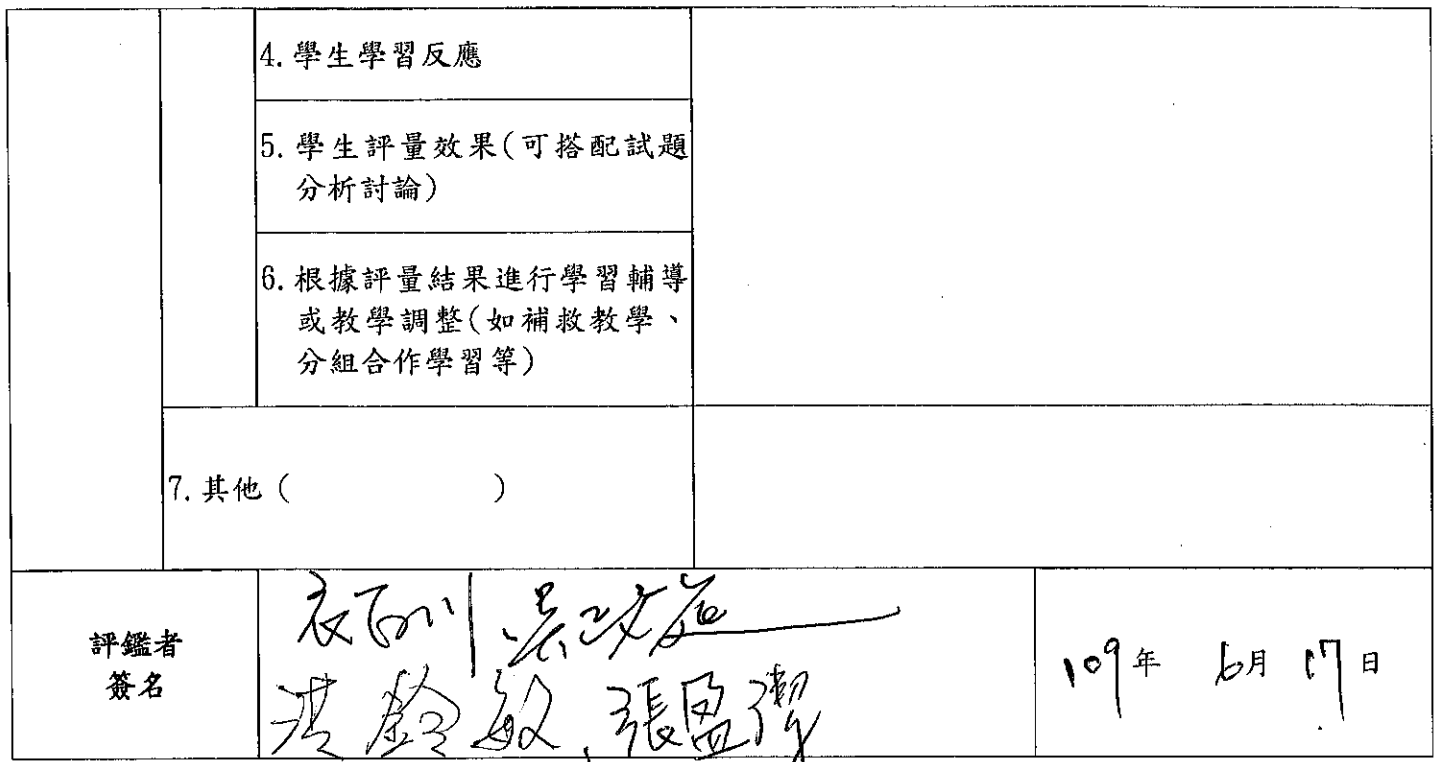 4. 學生學習反應
5. 學生評量效果(可搭配試題
分析討論)
6. 根據評量結果進行學習輔導
或教學調整(如補救教學、
分組合作學習等)
7. 其他 ( )
評鑑者
簽名
洪鈴敏、張盈潔
109年 6月 17日